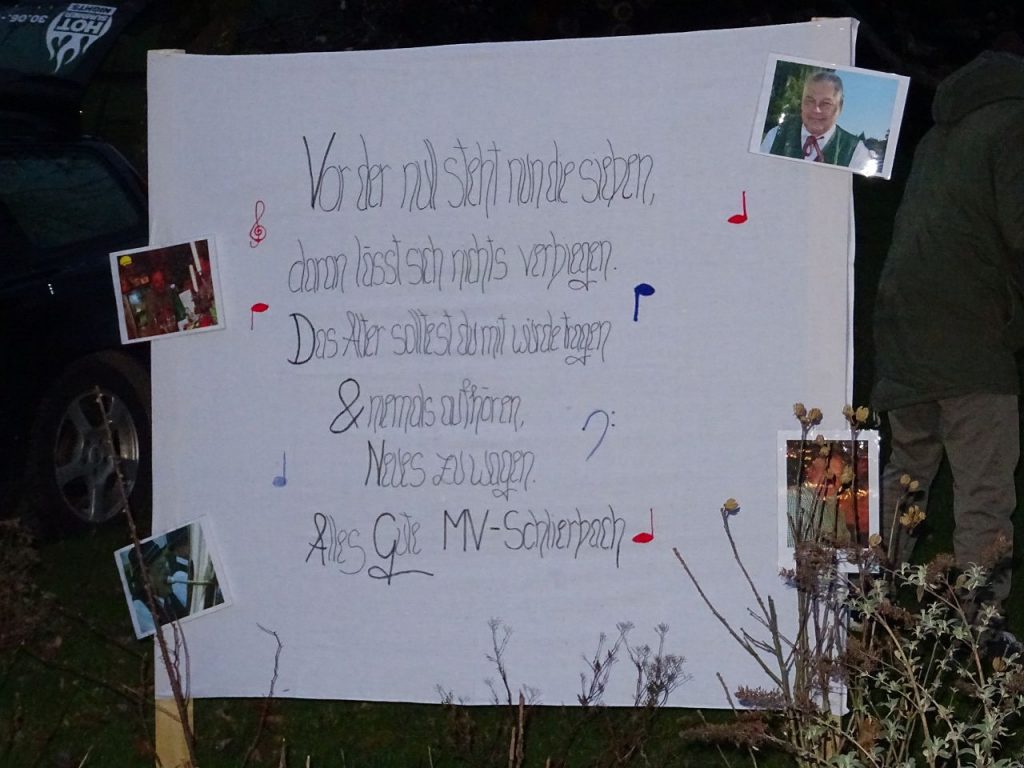 HOT
NIGHTS
30.06.
Vor der null steht nun die sieben,
daran lässt sich nichts verbiegen.
Das Alter solltest du mit würde tragen
& niemals aufhören,
Neues zu wagen.
Alles Gute MV-Schlierbach